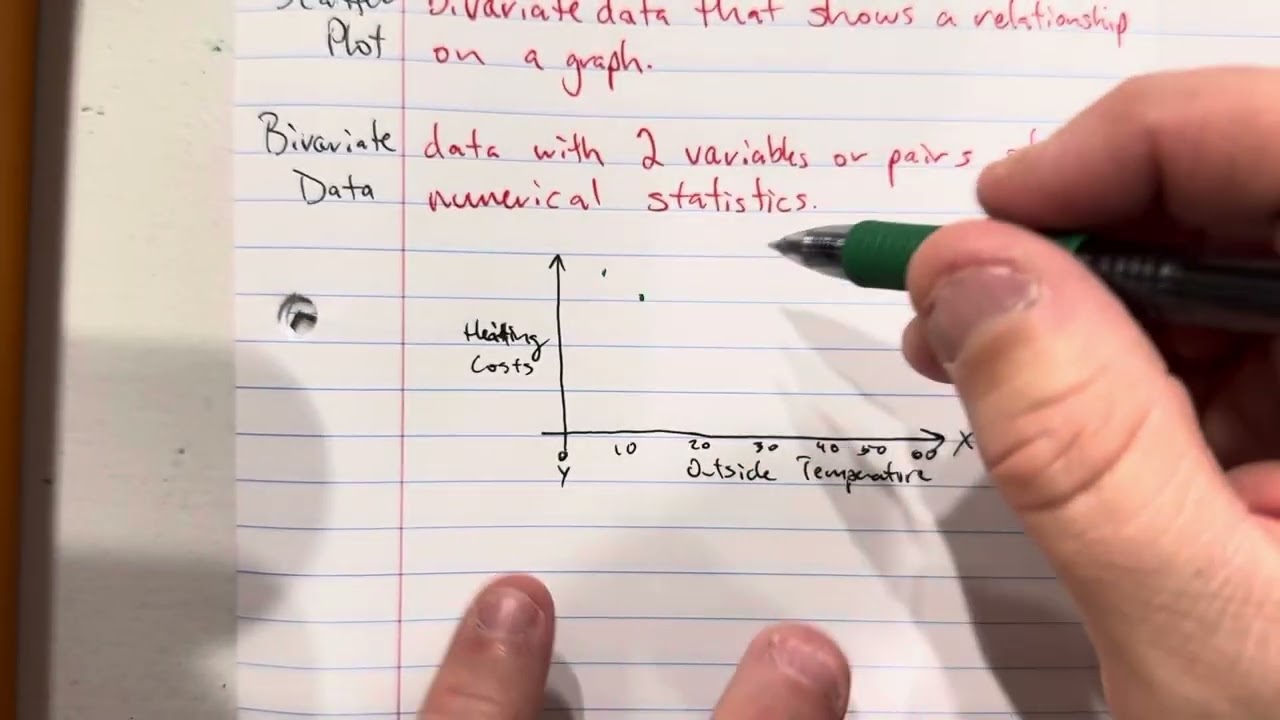 Bivariate data that shows a relationship
Plot on a graph.
Bivariate data with 2 variables or pairs
Data numerical statistics.
Heating
Costs
10 20 30 40 50 60 X
0 Outside Temperature
Y